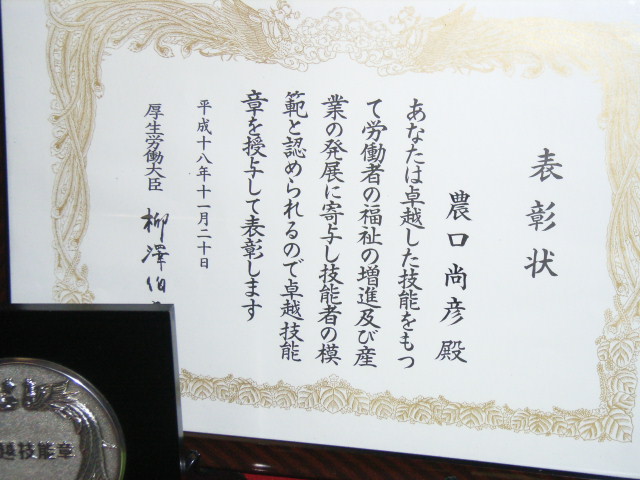 表彰状
農口尚彦殿
あなたは卓越した技能をもつ
て労働者の福祉の増進及び産
業の発展に寄与し技能者の模
範と認められるので卓越技能
章を授与して表彰します
平成十八年十一月二十日
厚生労働大臣 柳澤伯
越技能章